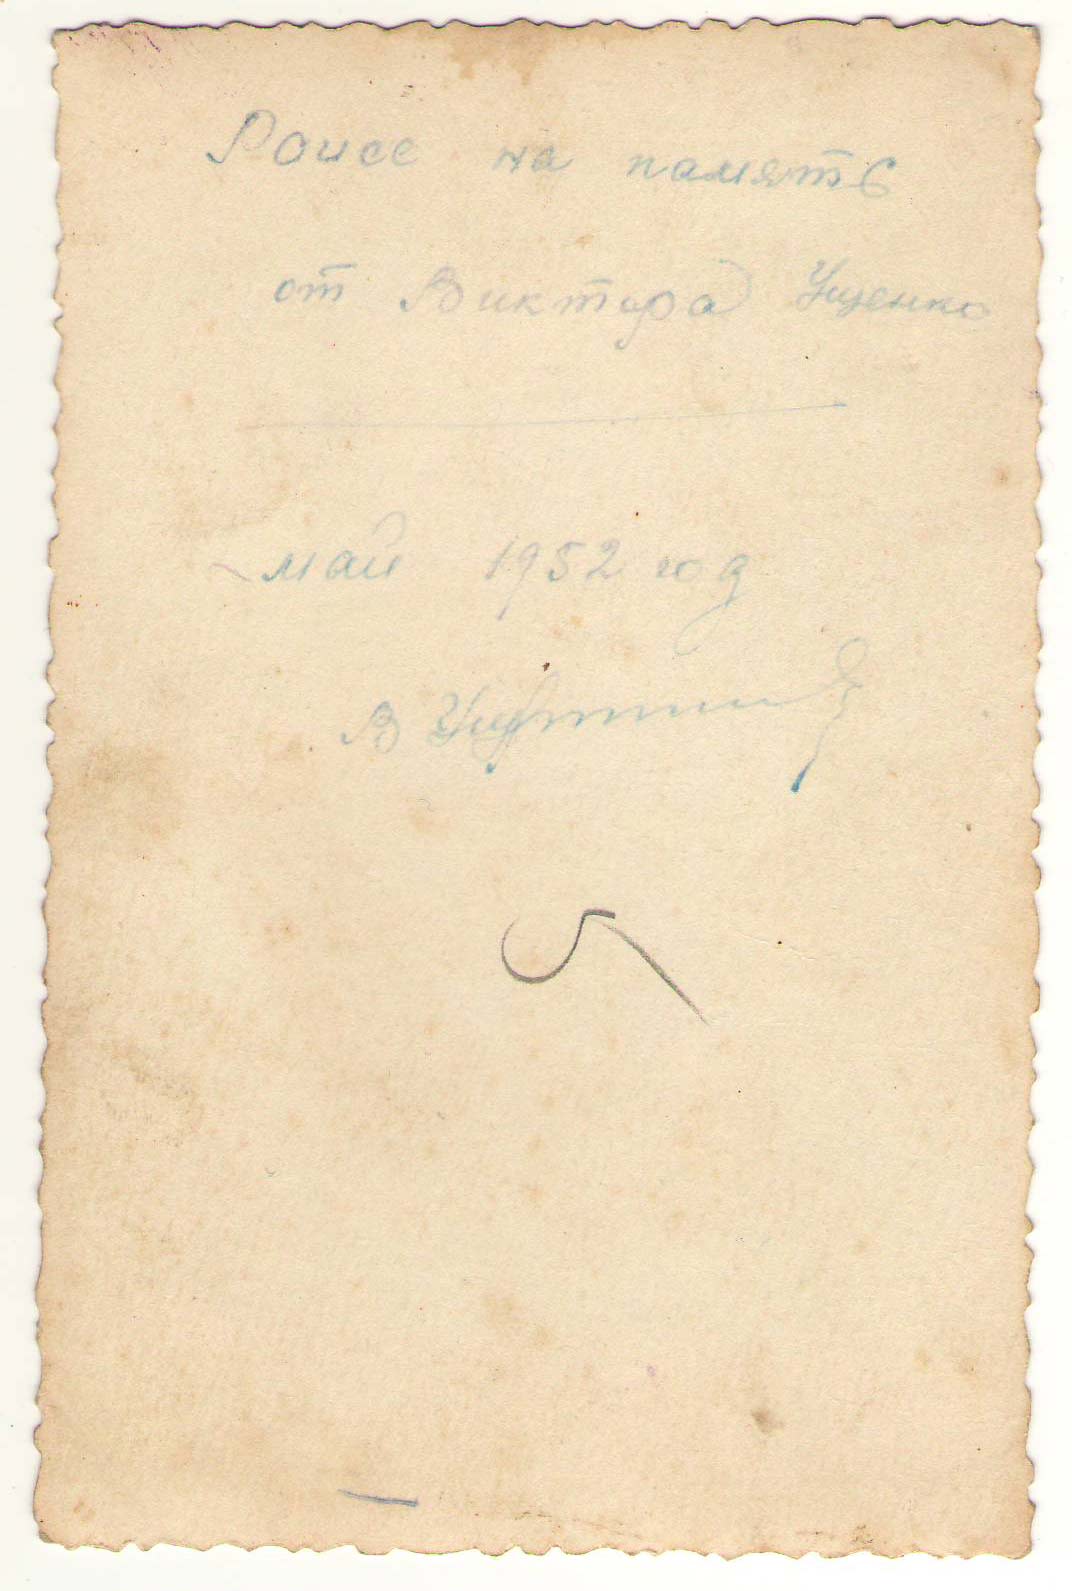 Раисе на память
от Виктора Ущенко
май 1952 год
В